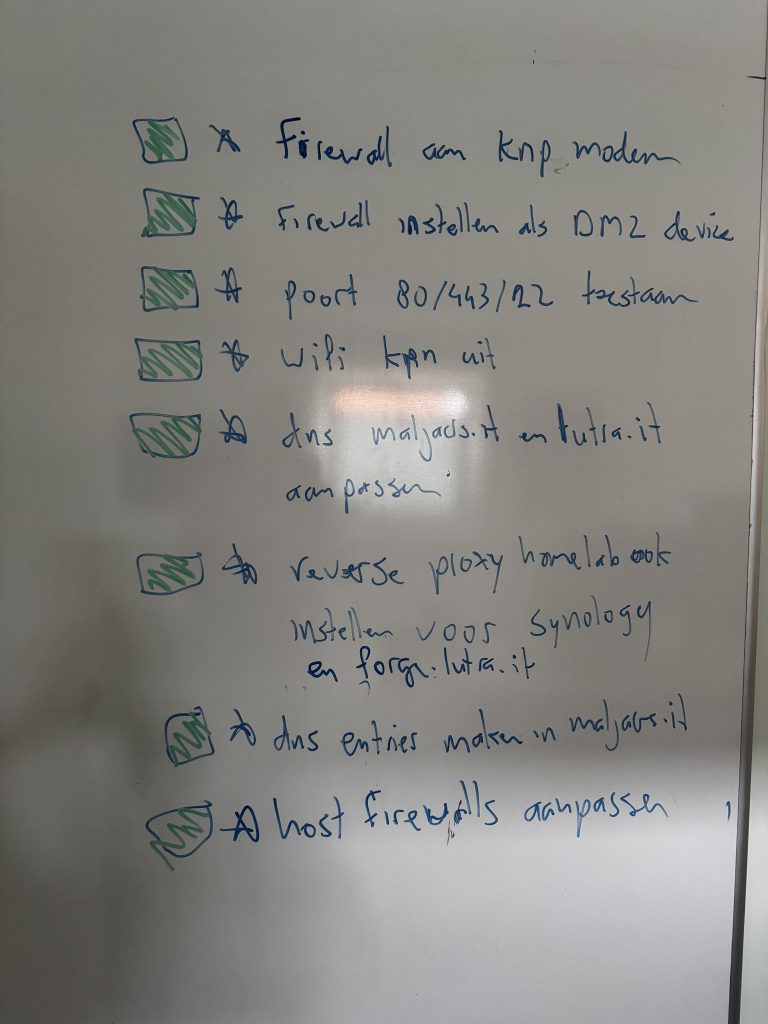 Firewall aan knp modem
Firewall instellen als DMZ device
poort 80/443/22 toestaan
wifi kpn uit
dns maljaars.it en lutra.it
aanpassen
reverse proxy homelab ook
instellen voor synology
en forge.lutra.it
dns entries maken in maljaars.it
host firewalls aanpassen